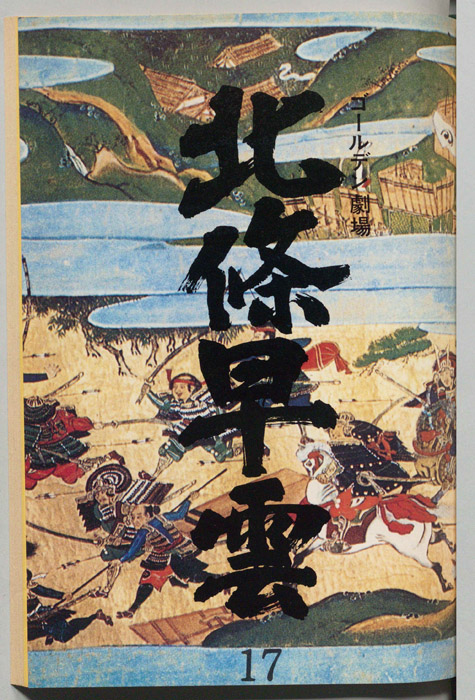 ゴールデン劇場
北條早雲
17